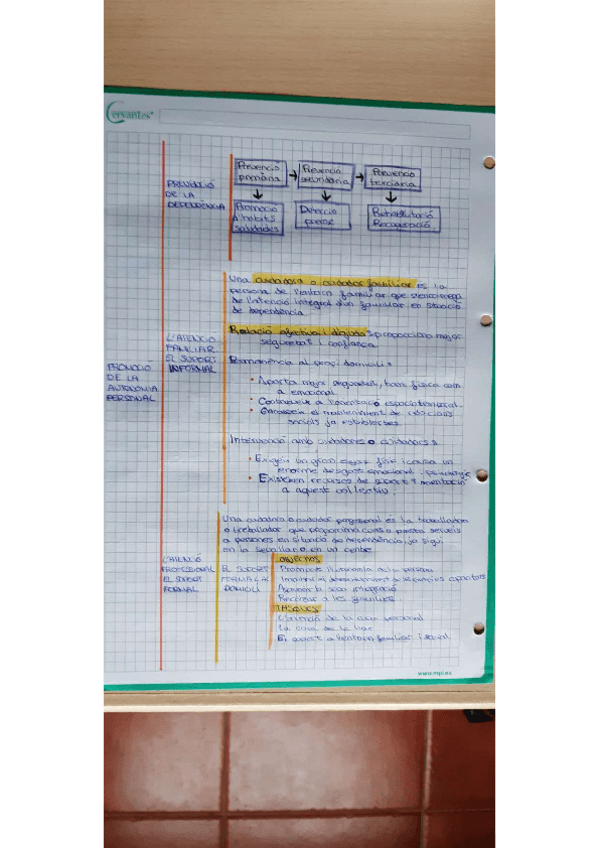 Cervantes
PREVENCIÓ
DE LA
DEPENDÈNCIA
Prevenció
primària
Prevenció
secundària
Prevenció
terciària
Promoció
d'hàbits
saludables
Detecció
precoç
Rehabilitació
Recuperació
PROMOCIÓ
DE LA
AUTONOMIA
PERSONAL
L'ATENCIÓ
FAMILIAR
EL SUPORT
INFORMAL
Una cuidadora o cuidador familiar és la
persona de l'entorn familiar que
de l'atenció integral d'un familiar en situació
de dependència.
Relació afectiva i proporciona major
seguretat i confiança.
Permanència al propi domicili:
• Aporta major seguretat, tant física com
a emocional.
• l'orientació espaciotemporal.
• el manteniment de relacions
socials ja establertes.
Intervenció amb cuidadores o cuidadors:
• Exigeix un gran esforç físic i causa un
enorme desgast emocional i psicològic
• Existeixen recursos de suport i orientació
a aquest col·lectiu.
L'ATENCIÓ
PROFESSIONAL
EL SUPORT
FORMAL
Una cuidadora o cuidador professional és la treballadora
o treballador que proporciona cures o presta serveis
a persones en situació de dependència, ja sigui
en la seva llar o en un centre.
EL SUPORT
FORMAL A
DOMICILI
OBJECTIUS
Promoure l'autonomia de la persona
capacitats
la seva integració
a les famílies.
TASQUES
L'atenció de la cura personal
La cura de la llar
El suport a l'entorn familiar i social.